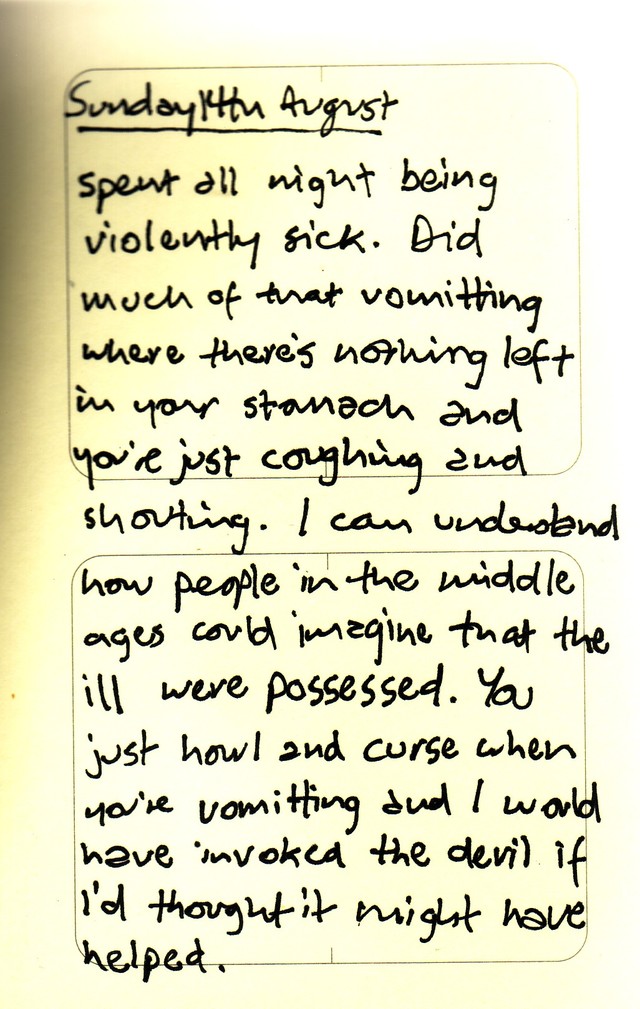 Sunday 14th August
spent all night being
violently sick. Did
much of that vomitting
where there's nothing left
in your stomach and
you're just coughing and
shouting. I can understand
how people in the middle
ages could imagine that the
ill were possessed. You
just howl and curse when
you're vomitting and I would
have invoked the devil if
I'd thought it might have
helped.